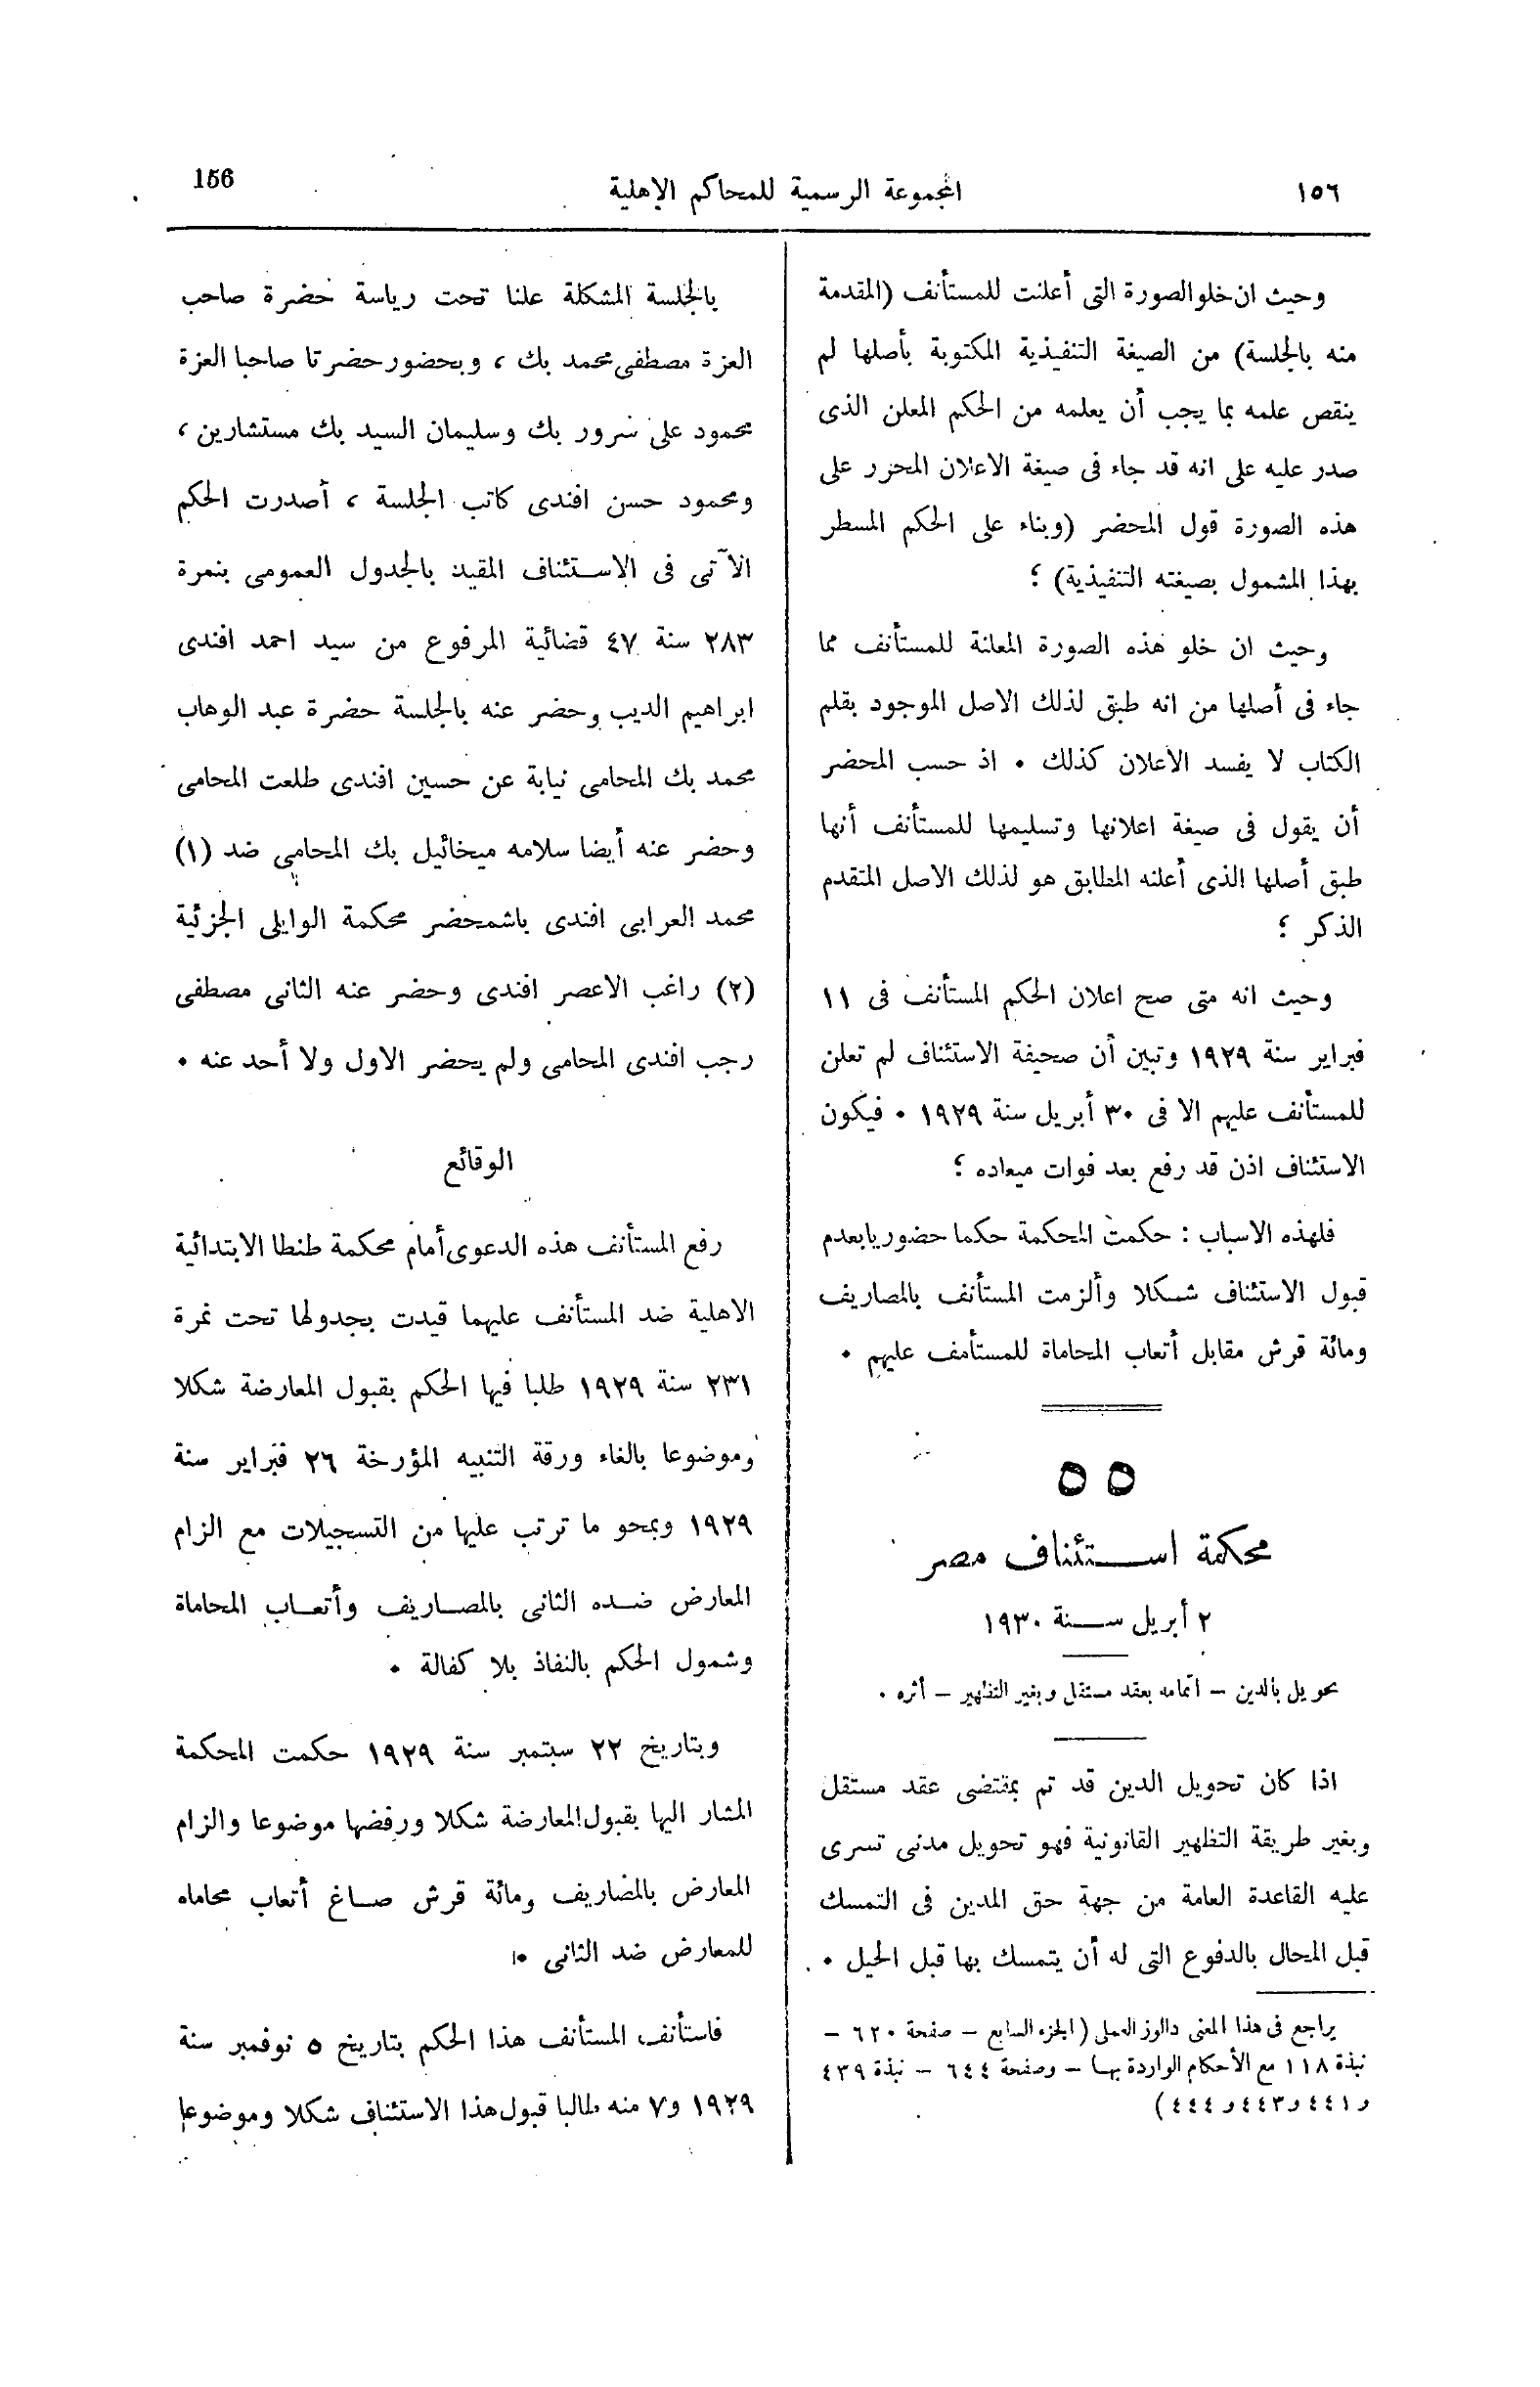 156
المجموعة الرسمية للمحاكم الاهلية
١٥٦
وحيث ان خلو الصورة التى أعلنت للمستأنف (المقدمة
منه بالجلسة) من الصيغة التنفيذية المكتوبة بأصلها لم
ينقص علمه بما يجب أن يعلمه من الحكم المعلن الذى
صدر عليه على انه قد جاء فى صيغة الاعلان المحرر على
هذه الصورة قول المحضر (وبناء على الحكم المسطر
بهذا المشمول بصيغته التنفيذية) ؛
وحيث ان خلو هذه الصورة المعلنة للمستأنف مما
جاء فى أصلها من انه طبق لذلك الاصل الموجود بقلم
الكتاب لا يفسد الاعلان كذلك . اذ حسب المحضر
أن يقول فى صيغة اعلانها وتسليمها للمستأنف أنها
طبق أصلها الذى أعلنه المطابق هو لذلك الاصل المتقدم
الذكر ؛
وحيث انه متى صح اعلان الحكم المستأنف فى ١١
فبراير سنة ١٩٢٩ وتبين أن صحيفة الاستئناف لم تعلن
للمستأنف عليهم الا فى ٣٠ أبريل سنة ١٩٢٩ . فيكون
الاستئناف اذن قد رفع بعد فوات ميعاده ؛
فلهذه الاسباب : حكمت المحكمة حكما حضوريا بعدم
قبول الاستئناف شكلا وألزمت المستأنف بالمصاريف
ومائة قرش مقابل أتعاب المحاماة للمستأمف عليهم .
٥٥
محكمة استئناف مصر
٢ أبريل سنة ١٩٣٠
تحويل بالدين – اتمامه بعقد مستقل وبغير التظهير – أثره .
اذا كان تحويل الدين قد تم بمقتضى عقد مستقل
وبغير طريقة التظهير القانونية فهو تحويل مدنى تسرى
عليه القاعدة العامة من جهة حق المدين فى التمسك
قبل المحال بالدفوع التى له أن يتمسك بها قبل المحيل .
يراجع فى هذا المعنى دالوز العملى (الجزء السابع – صفحة ٦٢٠ –
نبذة ١١٨ مع الأحكام الواردة بها – وصفحة ٦٤٤ – نبذة ٤٣٩
و٤٤١ و٤٤٣ و٤٤٤)
بالجلسة المشكلة علنا تحت رياسة حضرة صاحب
العزة مصطفى محمد بك ، وبحضور حضرتا صاحبا العزة
محمود على سرور بك وسليمان السيد بك مستشارين ،
ومحمود حسن افندى كاتب الجلسة ، أصدرت الحكم
الآتى فى الاستئناف المقيد بالجدول العمومى بنمرة
٢٨٣ سنة ٤٧ قضائية المرفوع من سيد احمد افندى
ابراهيم الديب وحضر عنه بالجلسة حضرة عبد الوهاب
محمد بك المحامى نيابة عن حسين افندى طلعت المحامى
وحضر عنه أيضا سلامه ميخائيل بك المحامى ضد (١)
محمد العرابى افندى باشمحضر محكمة الوايلى الجزئية
(٢) راغب الاعصر افندى وحضر عنه الثانى مصطفى
رجب افندى المحامى ولم يحضر الاول ولا أحد عنه .
الوقائع
رفع المستأنف هذه الدعوى أمام محكمة طنطا الابتدائية
الاهلية ضد المستأنف عليهما قيدت بجدولها تحت نمرة
٢٣١ سنة ١٩٢٩ طلبا فيها الحكم بقبول المعارضة شكلا
وموضوعا بالغاء ورقة التنبيه المؤرخة ٢٦ فبراير سنة
١٩٢٩ وبمحو ما ترتب عليها من التسجيلات مع الزام
المعارض ضده الثانى بالمصاريف وأتعاب المحاماة
وشمول الحكم بالنفاذ بلا كفالة .
وبتاريخ ٢٢ سبتمبر سنة ١٩٢٩ حكمت المحكمة
المشار اليها بقبول المعارضة شكلا ورفضها موضوعا والزام
المعارض بالمصاريف ومائة قرش صاغ أتعاب محاماه
للمعارض ضد الثانى .
فاستأنف المستأنف هذا الحكم بتاريخ ٥ نوفمبر سنة
١٩٢٩ و٧ منه طالبا قبول هذا الاستئناف شكلا وموضوعا